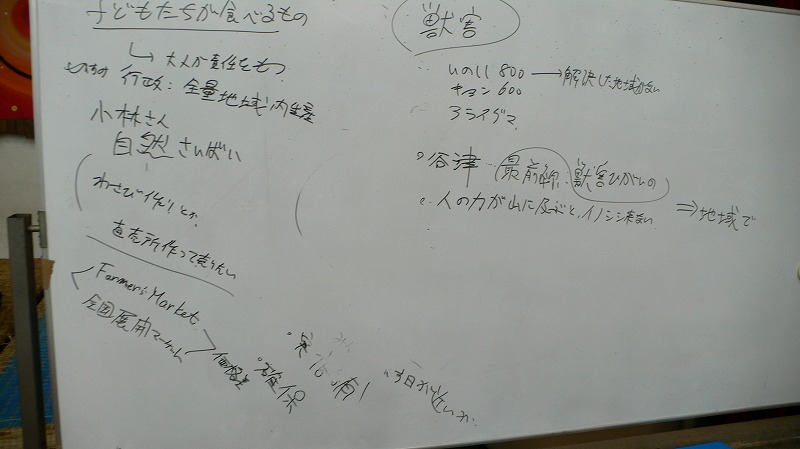 子どもたちが食べるもの
大人が責任をもつ
行政: 全量地域内生産
小林さん
自然さいばい
わさび作りとか
直売所作って売りたい
Farmer's Market
全国展開マーケット
価格差
確保
獣害
いのしし 800 → 解決した地域がない
キョン 600
アライグマ
谷津 最前線: 獣害ひがいの
人の力が山に及ぶと、イノシシ来ない ⇒ 地域で